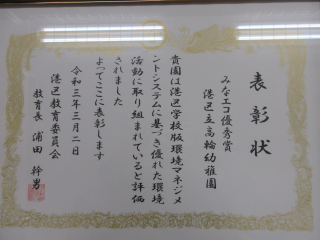 表彰状
みなとエコ優秀賞
港区立高輪幼稚園
貴園は港区学校版環境マネジメ
ントシステムに基づき優れた環境
活動に取り組まれていると評価
されました
よってここに表彰します
令和三年三月二日
港区教育委員会
教育長 浦田幹男